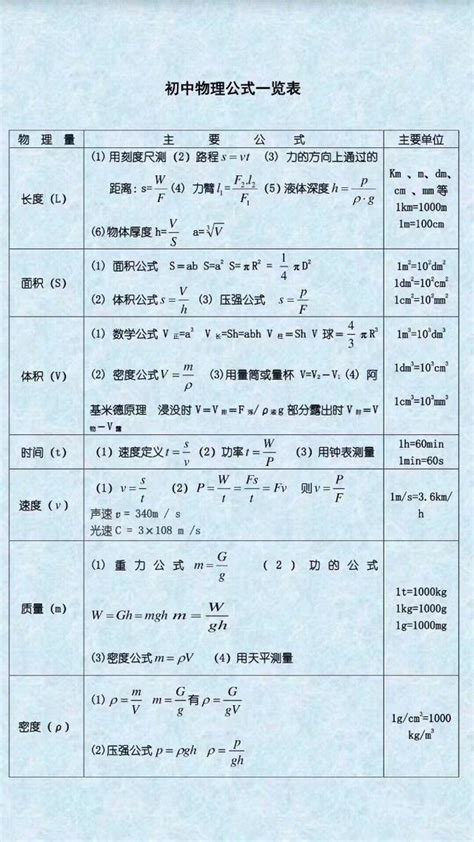 初中物理公式一览表
物 理 量 主 要 公 式 主要单位
长度（L）
(1) 用刻度尺测 (2) 路程 s = vt (3) 力的方向上通过的
距离: s= W/F (4) 力臂 l₁= F₂l₂/F₁ (5) 液体深度 h = p/ρ·g
(6)物体厚度 h= V/S a=∛V
Km 、m、dm、
cm 、mm 等
1km=1000m
1m=100cm
面积（S）
(1) 面积公式 S＝ab S=a² S=πR² = 1/4 πD²
(2) 体积公式 s = V/h (3) 压强公式 s = p/F
1m²=10²dm²
1dm²=10²cm²
1cm²=10²mm²
体积（V）
(1) 数学公式 V 正=a³ V 长=Sh=abh V 柱＝Sh V 球＝ 4/3 πR³
(2) 密度公式 V = m/ρ (3)用量筒或量杯 V=V₂－V₁ (4) 阿
基米德原理 浸没时 V＝V 排＝F 浮/ρ液g 部分露出时 V排＝V
物－V 露
1m³=10³dm³
1dm³=10³cm³
1cm³=10³mm³
时间（t）
(1) 速度定义 t = s/v (2) 功率 t = W/P (3) 用钟表测量
1h=60min
1min=60s
速度（v）
(1) v = s/t (2) P = W/t = Fs/t = Fv 则 v = P/F
声速 υ = 340m / s
光速 C = 3×108 m /s
1m/s=3.6km/
h
质量（m）
(1) 重 力 公 式 m = G/g ( 2 ) 功 的 公 式
W = Gh = mgh m = W/gh
(3)密度公式 m = ρV (4) 用天平测量
1t=1000kg
1kg=1000g
1g=1000mg
密度（ρ）
(1) ρ = m/V m = G/g 有 ρ = G/gV
(2)压强公式 p = ρgh ρ = p/gh
1g/cm³=1000
kg/m³